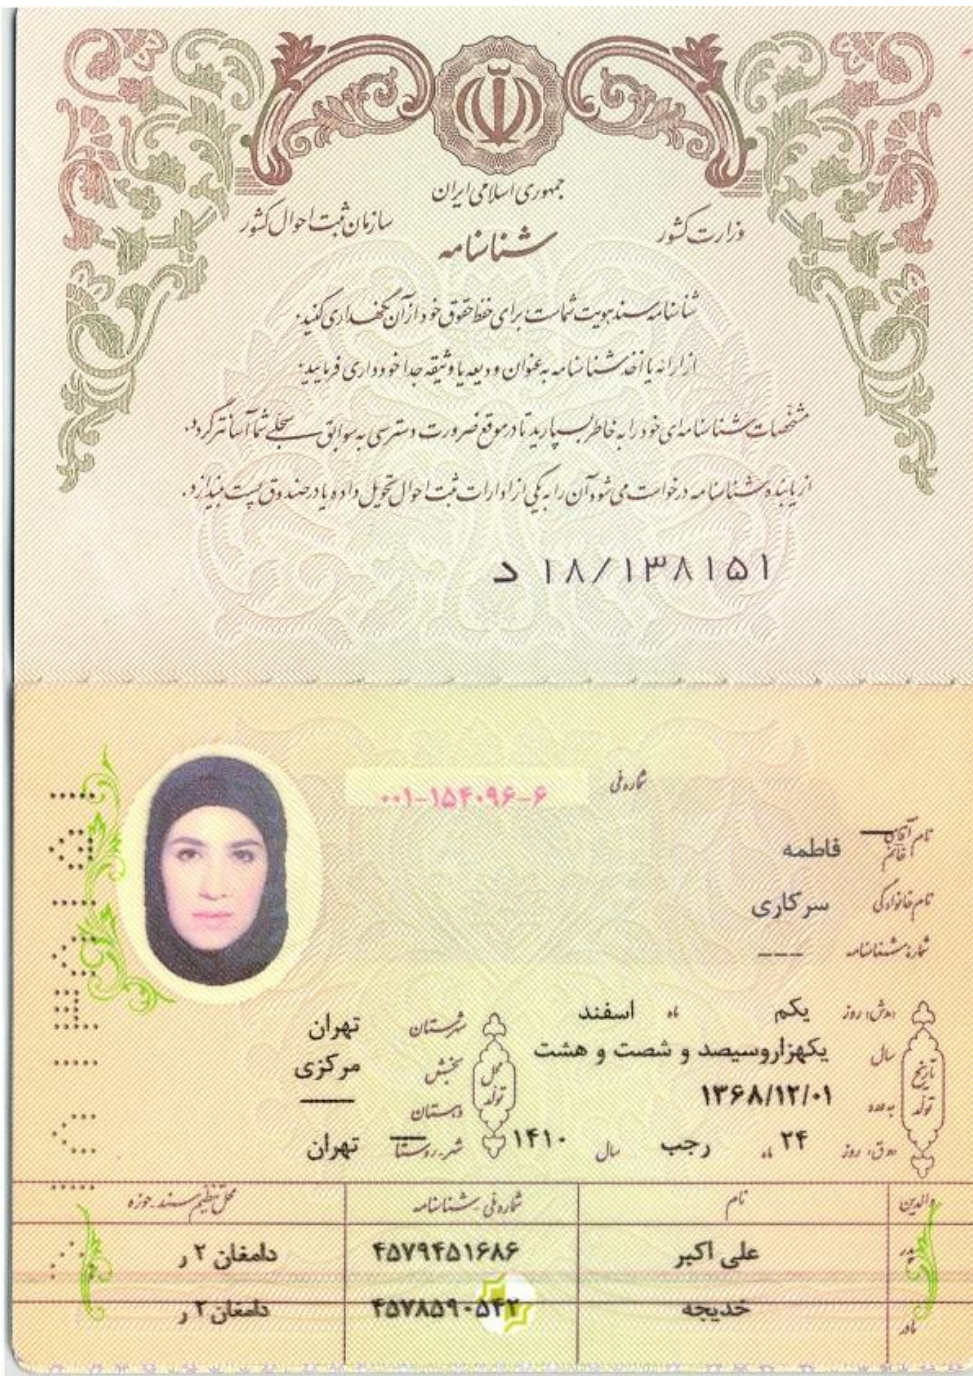 جمهوری اسلامی ایران
وزارت کشور
سازمان ثبت احوال کشور
شناسنامه
شناسنامه سند هویت شماست برای حفظ حقوق خود از آن نگهداری کنید.
از ارائه یا اخذ شناسنامه به عنوان ودیعه یا وثیقه جدا خودداری فرمایید.
مشخصات شناسنامه‌ای خود را به خاطر بسپارید تا در موقع ضرورت دسترسی به سوابق سجلی شما آسانتر گردد.
از یابنده شناسنامه درخواست می شود آن را به یکی از ادارات ثبت احوال تحویل داده یا در صندوق پست بیندازد.
د ۱۸/۱۳۸۱۵۱
شماره ملی ۰۰۱-۱۵۴۰۹۶-۶
نام آقای خانم فاطمه
نام خانوادگی سرکاری
شماره شناسنامه ---
تاریخ تولد
ه‍.ش. روز یکم ماه اسفند
سال یکهزاروسیصد و شصت و هشت
به عدد ۱۳۶۸/۱۲/۰۱
ه‍.ق. روز ۲۴ ماه رجب سال ۱۴۱۰
محل تولد
شهرستان تهران
بخش مرکزی
دهستان ---
شهر-روستا تهران
والدین نام شماره ملی-شناسنامه محل تنظیم سند-حوزه
پدر علی اکبر ۴۵۷۹۴۵۱۶۸۶ دامغان ۲ ر
مادر خدیجه ۴۵۷۸۵۹۰۵۴۲ دامغان ۲ ر